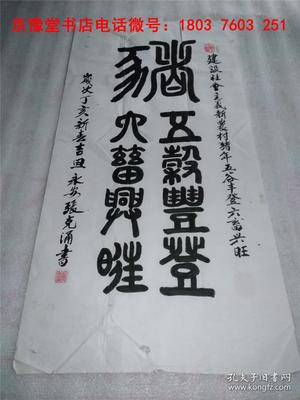 京豫堂书店电话微号：1803 7603 251
建設社會主義新農村猪年五谷丰登六畜兴旺
豬
五穀豐登
六畜興旺
歲次丁亥新春吉旦 永安張克涌書
孔夫子旧书网